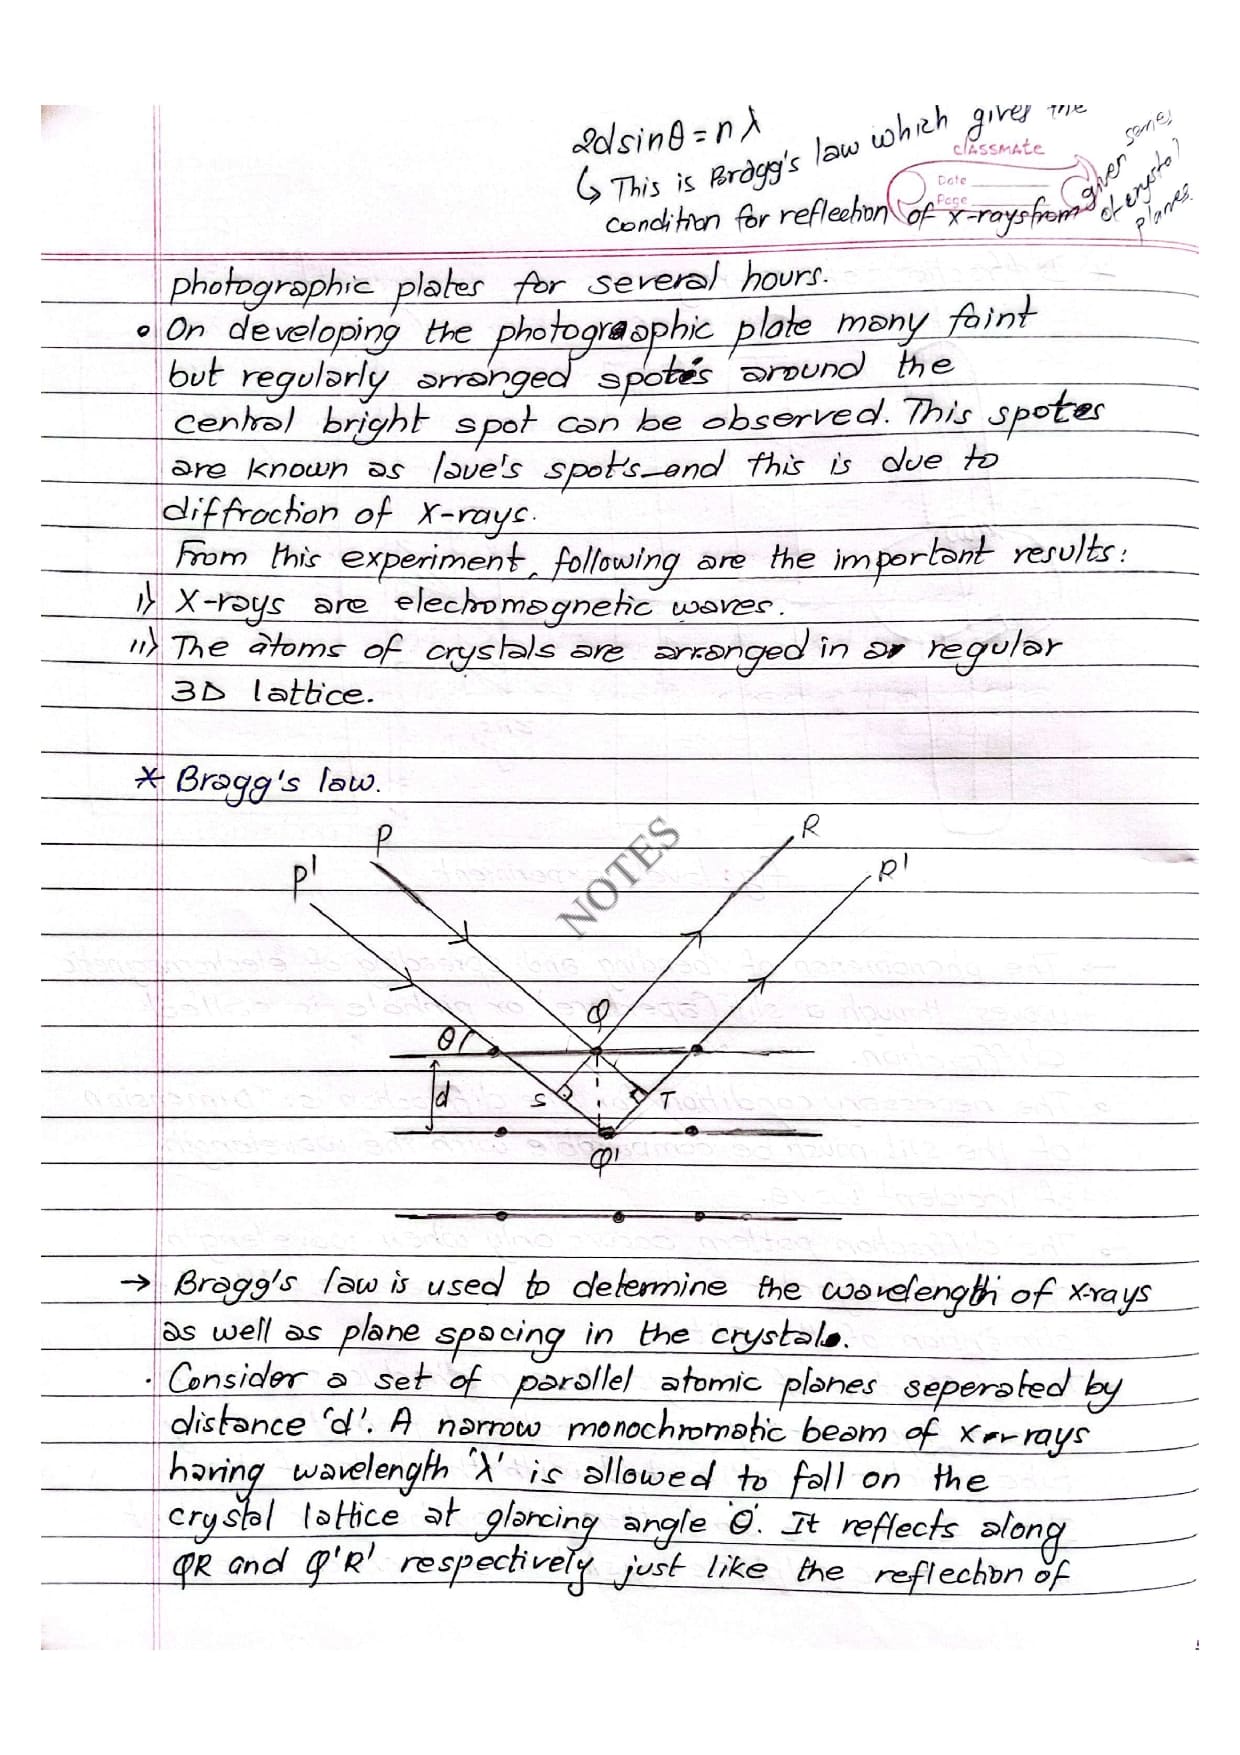 2dsinθ = nλ
↳ This is Bragg's law which gives the
classmate
Date
Page
condition for reflection of x-rays from given
series
of crystal
planes.
photographic plates for several hours.
• On developing the photographic plate many faint
but regularly arranged spots around the
central bright spot can be observed. This spotes
are known as laue's spot's and this is due to
diffraction of X-rays.
From this experiment, following are the important results:
i) X-rays are electromagnetic waves.
ii) The atoms of crystals are arranged in a regular
3D lattice.
* Bragg's law.
P
R
P'
R'
NOTES
Q
θ
d
S
T
Q'
→ Bragg's law is used to determine the wavelength of x-rays
as well as plane spacing in the crystal.
. Consider a set of parallel atomic planes seperated by
distance 'd'. A narrow monochromatic beam of x-rays
having wavelength 'λ' is allowed to fall on the
crystal lattice at glancing angle 'θ'. It reflects along
QR and Q'R' respectively just like the reflection of